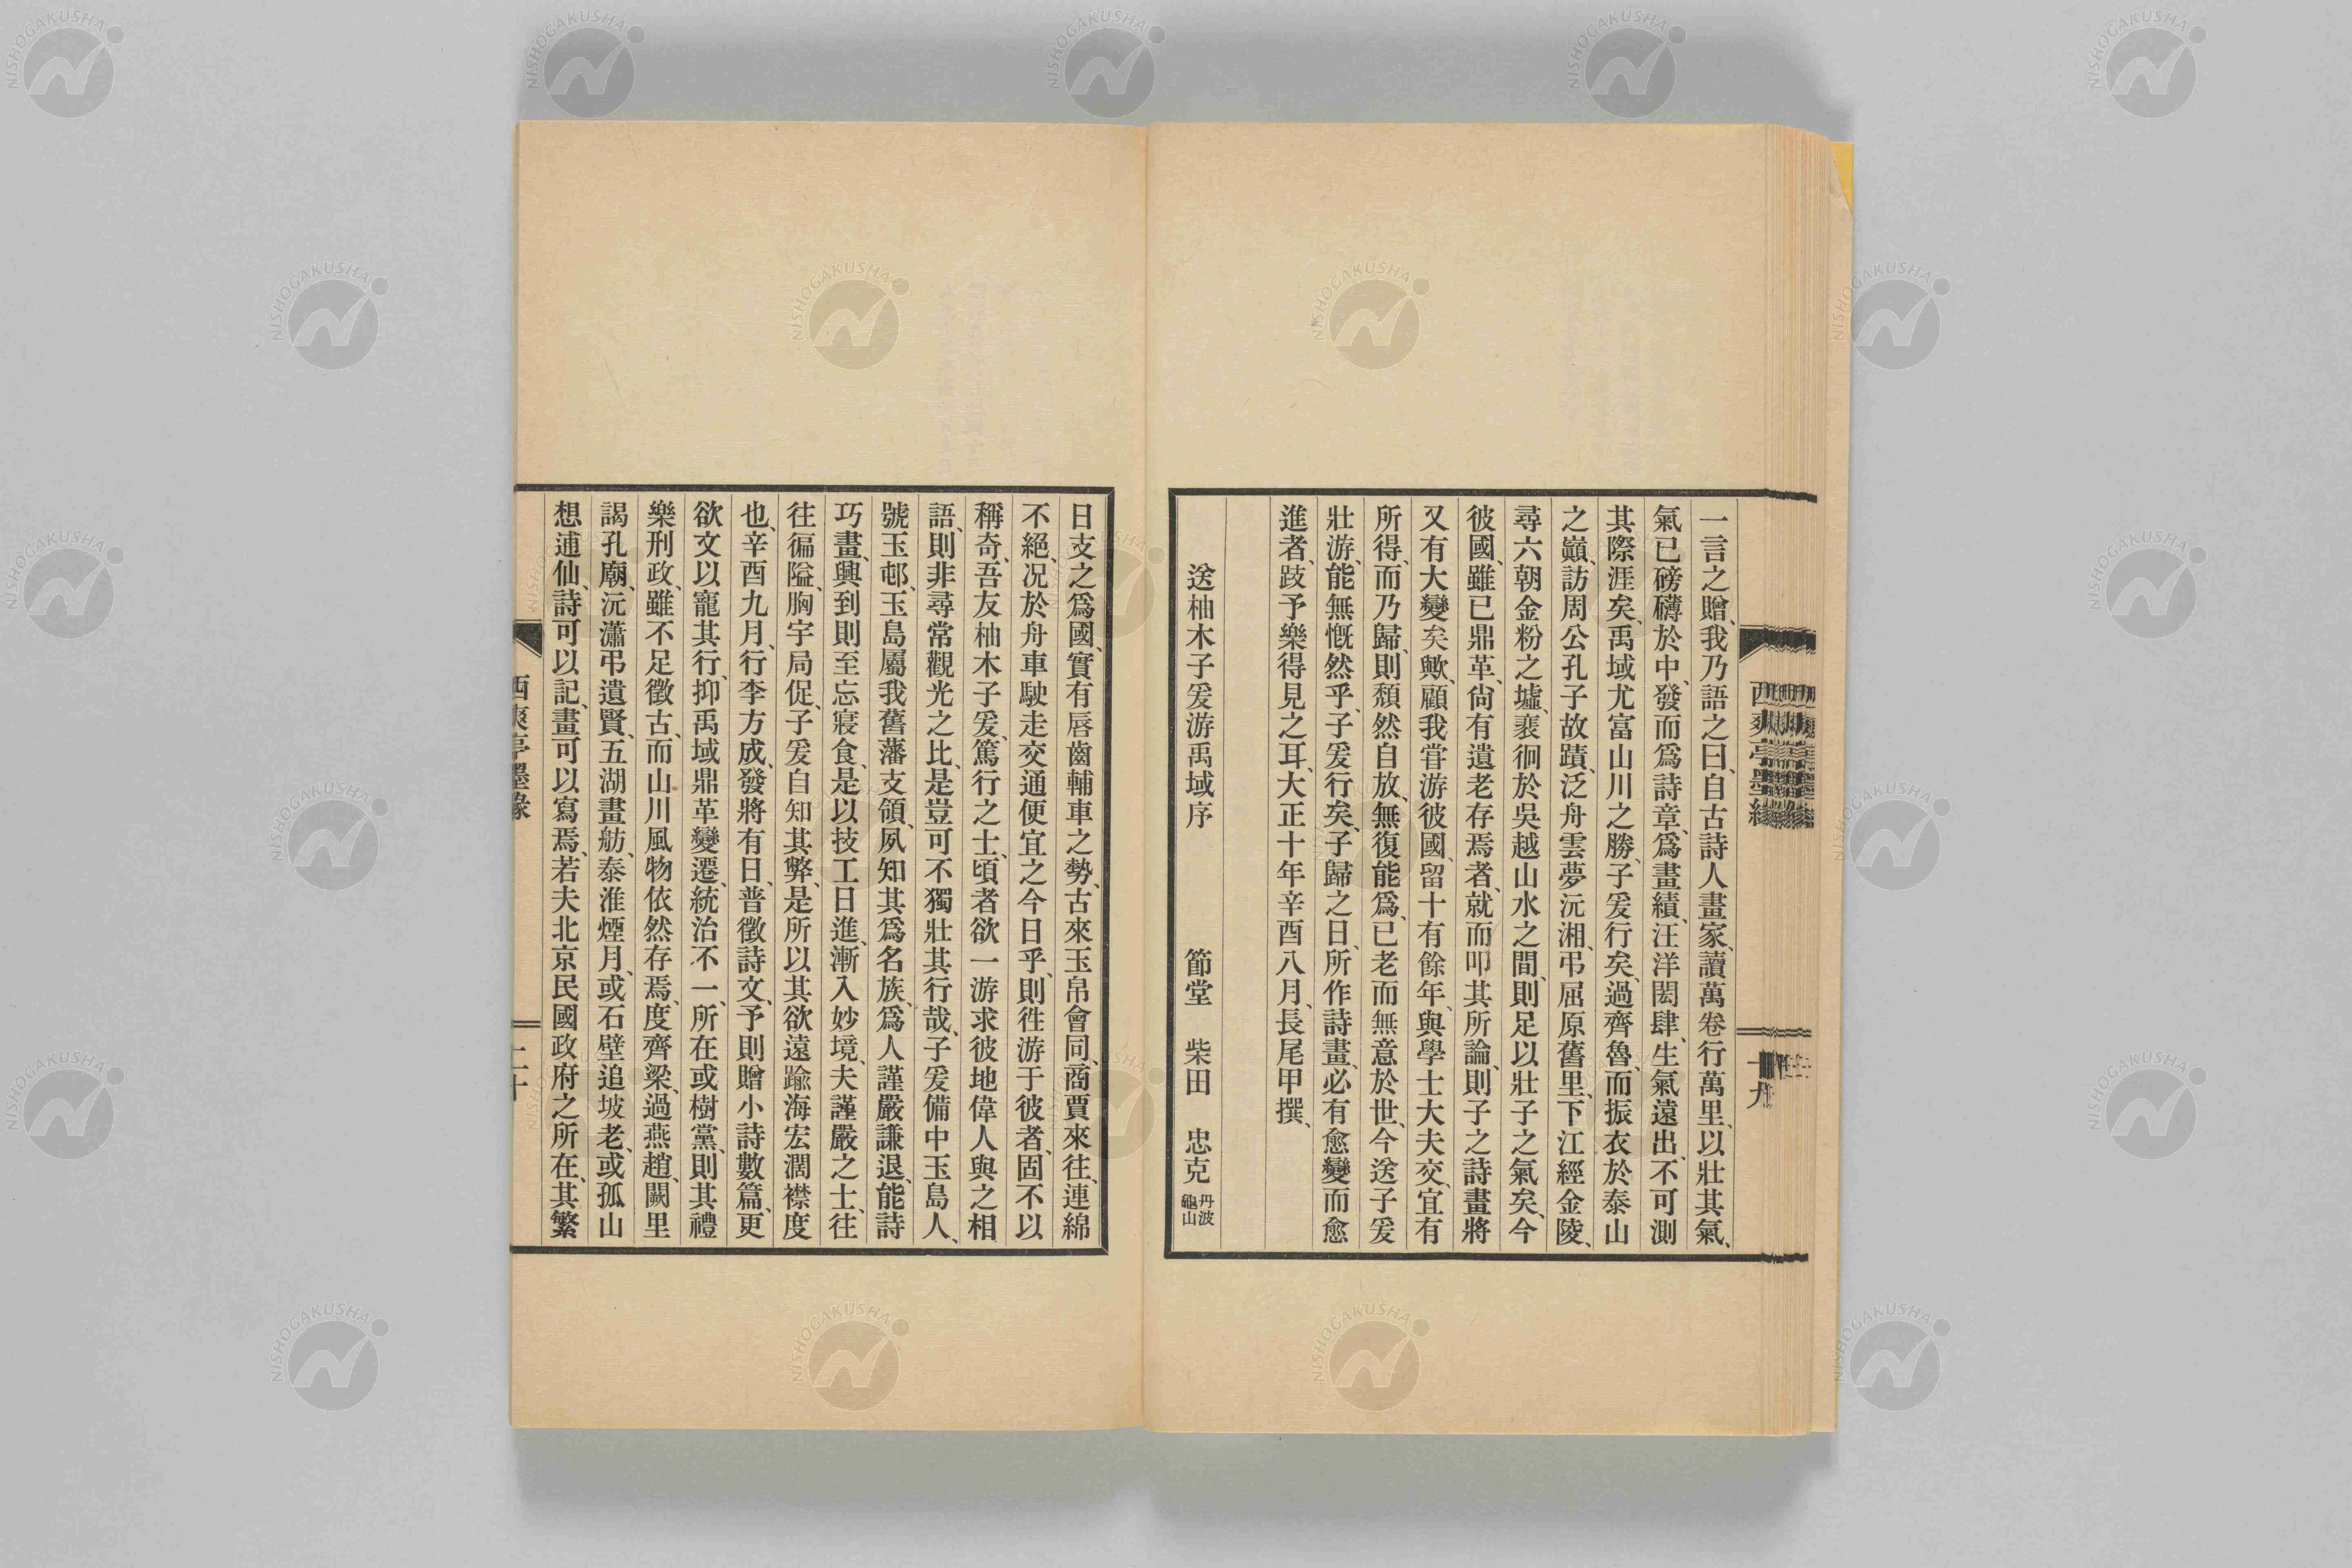 一言之贈、我乃語之曰、自古詩人畫家、讀萬卷行萬里、以壯其氣、
氣已磅礴於中、發而爲詩章、爲畫績、汪洋閎肆、生氣遠出、不可測
其際涯矣、禹域尤富山川之勝、子爰行矣、過齊魯、而振衣於泰山
之巓、訪周公孔子故蹟、泛舟雲夢沅湘、弔屈原舊里、下江經金陵、
尋六朝金粉之墟、裵徊於吳越山水之間、則足以壯子之氣矣、今
彼國、雖已鼎革、尙有遺老存焉者、就而叩其所論、則子之詩畫將
又有大變矣歟、顧我甞游彼國、留十有餘年、與學士大夫交、宜有
所得、而乃歸、則頹然自放、無復能爲、已老而無意於世、今送子爰
壯游、能無慨然乎、子爰行矣、子歸之日、所作詩畫、必有愈變而愈
進者、跂予樂得見之耳、大正十年辛酉八月、長尾甲撰、
送柚木子爰游禹域序
節堂 柴田 忠克 丹波龜山
西爽亭墨緣
十九
日支之爲國、實有唇齒輔車之勢、古來玉帛會同、商賈來往、連綿
不絕、况於舟車駛走交通便宜之今日乎、則徃游于彼者、固不以
稱奇、吾友柚木子爰、篤行之士、頃者欲一游求彼地偉人與之相
語、則非尋常觀光之比、是豈可不獨壯其行哉、子爰備中玉島人、
號玉邨、玉島屬我舊藩支領、夙知其爲名族、爲人謹嚴謙退、能詩
巧畫、興到則至忘寢食、是以技工日進、漸入妙境、夫謹嚴之士、往
往徧隘、胸宇局促、子爰自知其弊、是所以其欲遠踰海宏濶襟度
也、辛酉九月、行李方成、發將有日、普徵詩文、予則贈小詩數篇、更
欲文以寵其行、抑禹域鼎革變遷、統治不一、所在或樹黨、則其禮
樂刑政、雖不足徵古、而山川風物依然存焉、度齊梁、過燕趙、闕里
謁孔廟、沅瀟弔遺賢、五湖畫舫、泰淮煙月、或石壁追坡老、或孤山
想逋仙、詩可以記、畫可以寫焉、若夫北京民國政府之所在、其繁
西爽亭墨緣
二十